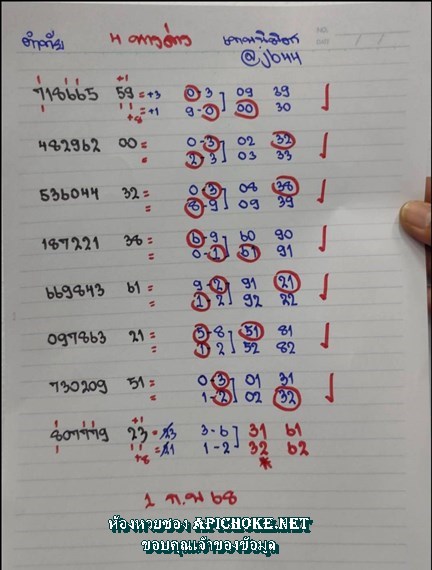 NO.
DATE / /
4 ดาวล่าง
@jb44
+1
718665 59 = +3 0-3 ] 09 39
+8 = +1 9-0 ] 00 30
482962 00 = 0-3 ] 02 32
= 2-3 ] 03 33
536044 32 = 0-3 ] 08 38
= 8-9 ] 09 39
187221 38 = 6-9 ] 60 90
= 0-1 ] 61 91
669843 61 = 9-2 ] 91 21
= 1-2 ] 92 22
097863 21 = 5-8 ] 51 81
= 1-2 ] 52 82
730209 51 = 0-3 ] 01 31
= 1-2 ] 02 32
+1
807779 23 = 23 3-6 ] 31 61
+8 = 21 1-2 ] 32 62
*
1 ก.พ 68
ห้องหวยซอง APICHOKE.NET
ขอบคุณเจ้าของข้อมูล